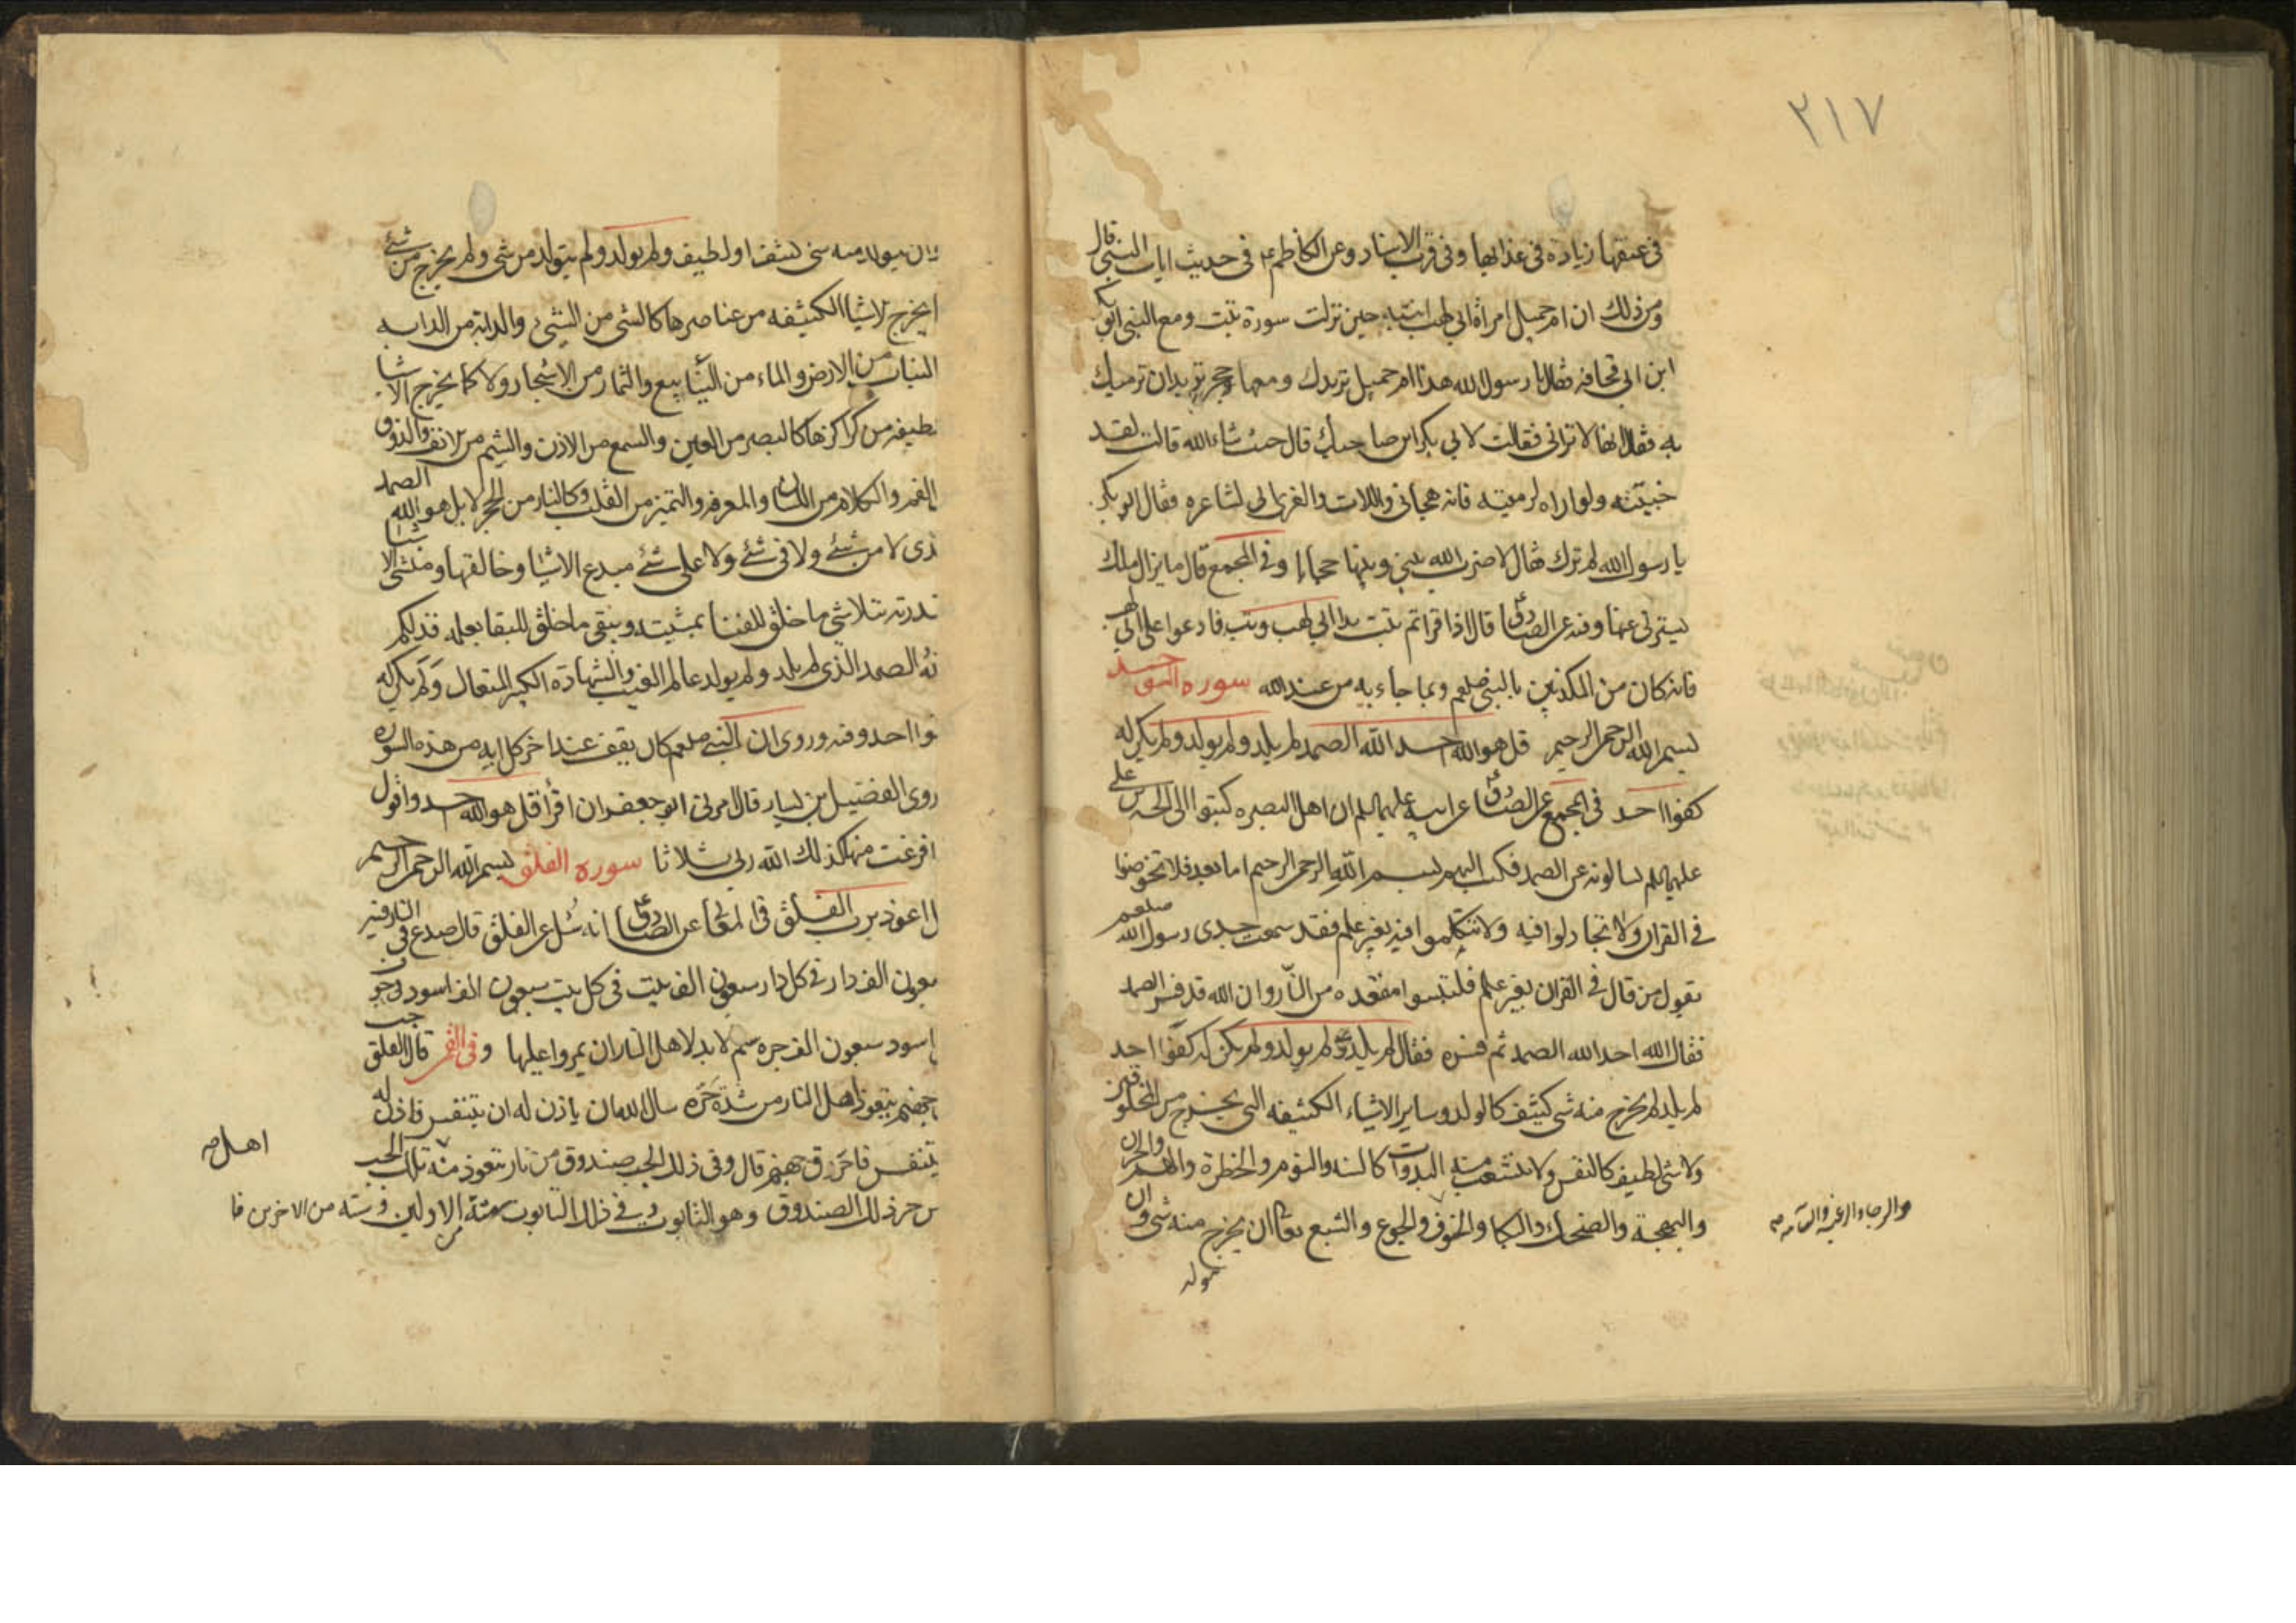 ٢١٧
فى عنقها زيادة فى عذابها وفى قرب الاسناد وعن الكاظم ع فى حديث ايات النبى قال
ومن ذلك ان ام جميل امرأة ابى لهب اتته حين نزلت سورة تبت ومع النبى ابو بكر
ابن ابى قحافه فقال يا رسول الله هذا ام جميل تريدك ومعها حجر تريد ان ترميك
به فقال انها لا ترانى فقالت لابى بكر اين صاحبك قال حيث شاء الله قالت لقد
جئته ولو اراه لرميته فانه هجانى واللات والعزى انى لشاعره فقال ابو بكر
يا رسول الله لم ترك قال لا ضرب الله بينى وبينها حجابا وفى المجمع قال ما يزال ملك
يسترنى عنها وفيه عن الصادق ع قال اذا قراتم تبت يدا ابى لهب وتب فادعوا على ابى لهب
فانه كان من المكذبين بالنبى صلعم وبما جاء به من عند الله سوره التوحيد
بسم الله الرحمن الرحيم قل هو الله احد الله الصمد لم يلد ولم يولد ولم يكن له
كفوا احد فى المجمع عن الصادق ع عن ابيه عليهما السلم ان اهل البصره كتبوا الى الحسين بن على
عليهما السلم يسالونه عن الصمد فكتب اليهم بسم الله الرحمن الرحيم اما بعد فلا تخوضوا
فى القران ولا تجادلوا فيه ولا تتكلموا فيه بغير علم فقد سمعت جدى رسول الله صلعم
يقول من قال فى القران بغير علم فليتبوا مقعده من النار وان الله قد فسر الصمد
فقال الله احد الله الصمد ثم فسره فقال لم يلد ولم يولد ولم يكن له كفوا احد
لم يلد لم يخرج منه شى كثيف كالولد وساير الاشياء الكثيفه التى يخرج من المخلوقين
ولا شى لطيف كالنفس ولا يتشعب منه البدوات كالسنه والنوم والخطرة والهم والحزن
والبهجة والضحك والبكا والخوف والجوع والشبع تعالى ان يخرج منه شى وان
والرجا والرغبه والسآمه صح
يتولد
ان يتولد منه شى كثيف او لطيف ولم يولد ولم يتولد من شى ولم يخرج من شئ
يخرج الاشيا الكثيفه من عناصرها كالشى من الشئ والدابة من الدابه
النبات من الارض والماء من الينابيع والثمار من الاشجار ولا كما يخرج الاشيا
لطيفه من مراكزها كالبصر من العين والسمع من الاذن والشم من الانف والذوق
الفم والكلام من اللسان والمعرفه والتميز من القلب وكالنار من الحجر لا بل هو الله الصمد
ذى لا من شئ ولا فى شئ ولا على شئ مبدع الاشيا وخالقها ومنشى الاشيا
قدرته يتلاشى ما خلق للفنا بمشيته ويبقى ما خلق للبقا بعلمه فذلكم
الله الصمد الذى لم يلد ولم يولد عالم الغيب والشهادة الكبير المتعال ولم يكن له
كفوا احد وفيه وروى ان النبى صلعم كان يقف عند اخر كل ايه من هذه السوره
روى الفضيل بن يسار قال امرنى ابو جعفر ان اقرأ قل هو الله احد واقول
افرغت منها كذلك الله ربى ثلاثا سوره الفلق بسم الله الرحمن الرحيم
ل اعوذ برب الفلق فى المعانى عن الصادق ع انه سُئل عن الفلق قال صدع فى النار فيه
سبعون الف دار فى كل دار سبعون الف بيت فى كل بيت سبعون الف اسود فى جوف
اسود سبعون الف جره سم لا بد لاهل النار ان يمروا عليها وفى القمى قال الفلق جب
جهنم يتعوذ اهل النار من شدة حَرّه سال الله ان ياذن له ان يتنفس فاذن له
يتنفس فاحرق جهنم قال وفى ذلك الجب صندوق من نار يتعوذ منه تلك الجب
اهل صح
من حر ذلك الصندوق وهو التابوت وفى ذلك التابوت ستة من الاولين وسته من الاخرين فا